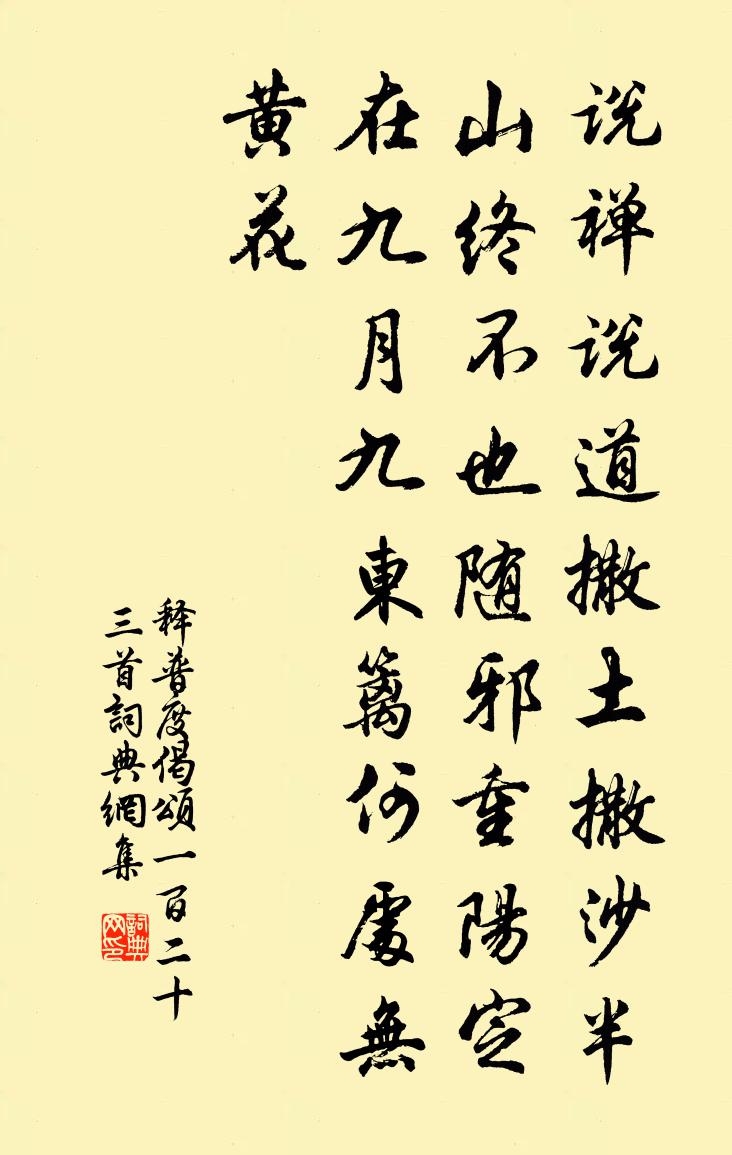 说禅说道撒土撒沙半
山终不也随邪重陽定
在九月九東籬何處無
黄花
释普度偈頌一百二十
三首詞典網集
詞典
网印